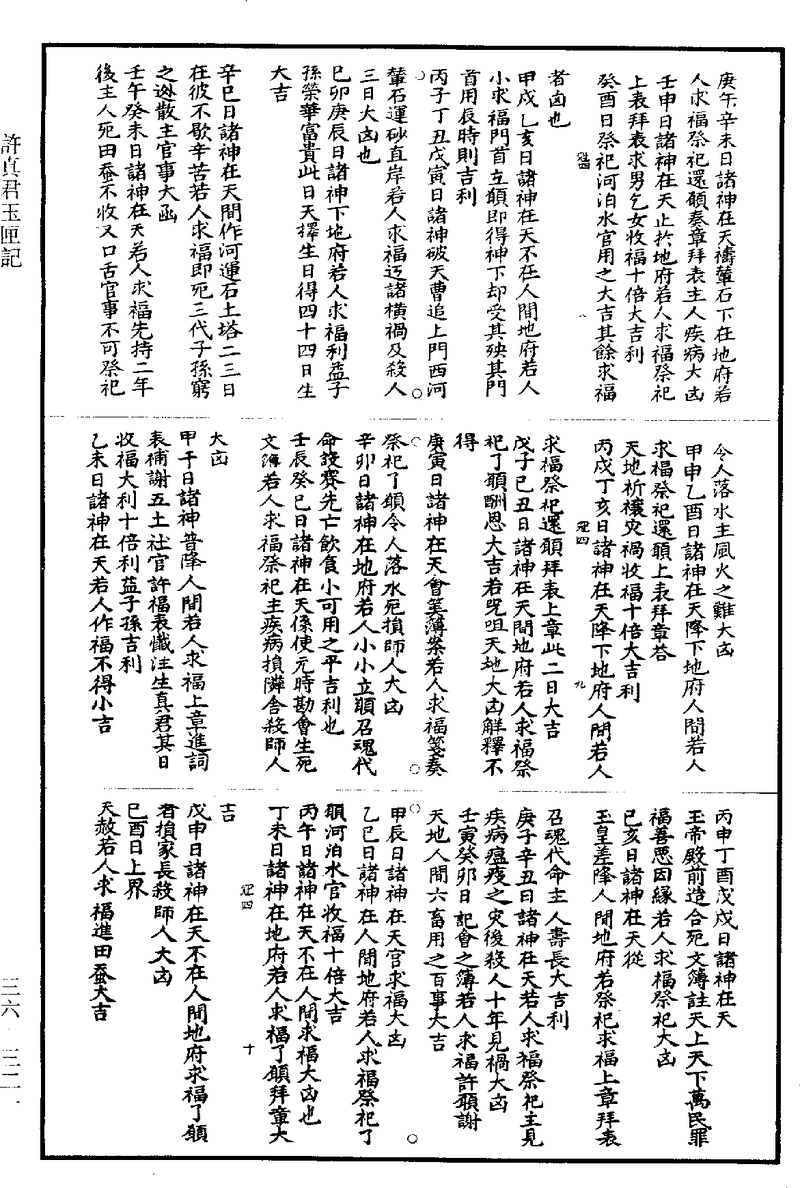 庚午辛未日諸神在天禱輦石下在地府若
人求福祭祀還願奏章拜表主人疾病大凶
壬申日諸神在天止於地府若人求福祭祀
上表拜表求男乞女收福十倍大吉利
癸酉日祭祀河泊水官用之大吉其餘求福
者凶也
甲戌乙亥日諸神在天不在人間地府若人
小求福門首立願即得神下却受其殃其門
首用辰時則吉利
丙子丁丑戊寅日諸神破天曹追上門西河
輦石運砂直岸若人求福迈諸橫禍及殺人
三日大凶也
巳卯庚辰日諸神下地府若人求福利益子
孫榮華富貴此日天擇生日得四十四日生
大吉
辛巳日諸神在天間作河運石土塔二三日
在彼不歇辛苦若人求福即死三代子孫窮
之逊散主官事大凶
壬午癸未日諸神在天若人求福先持二年
後主人死田蚕不收又口舌官事不可祭祀
令人落水主風火之難大凶
甲申乙酉日諸神在天降下地府人間若人
求福祭祀還願上表拜章荅
天地祈禳灾禍收福十倍大吉利
丙戌丁亥日諸神在天降下地府人間若人
冠四
九
求福祭祀還願拜表上章此二日大吉
戊子巳丑日諸神在天間地府若人求福祭
祀了願酬恩大吉若咒咀天地大凶解釋不
得
庚寅日諸神在天會筭薄案若人求福箋奏
祭祀了願令人落水死損師人大凶
辛卯日諸神在地府若人小小立願召魂代
命設賽先亡飲食小可用之平吉利也
壬辰癸巳日諸神在天係使元時勘會生死
文簿若人求福祭祀主疾病損隣舍殺師人
大凶
甲午日諸神普降人間若人求福上章進詞
表補謝五土社官許福表懺注生真君其日
收福大利十倍利益子孫吉利
乙未日諸神在天若人作福不得小吉
丙申丁酉戊戌日諸神在天
玉帝殿前造合死文簿註天上天下萬民罪
福善惡因緣若人求福祭祀大凶
巳亥日諸神在天從
玉皇差降人間地府若祭祀求福上章拜表
召魂代命主人壽長大吉利
庚子辛丑日諸神在天若人求福祭祀主見
疾病瘟疫之灾後殺人十年見禍大凶
壬寅癸卯日記會之簿若人求福許願謝
天地人間六畜用之百事大吉
甲辰日諸神在天宮求福大凶
乙巳日諸神在人間地府若人求福祭祀了
願河泊水官收福十倍大吉
丙午日諸神在天不在人間求福大凶也
丁未日諸神在地府若人求福了願拜章大
冠四
十
吉
戊申日諸神在天不在人間地府求福了願
者損家長殺師人大凶
巳酉日上界
天赦若人求福進田蚕大吉
許真君玉匣記
三六
三二一